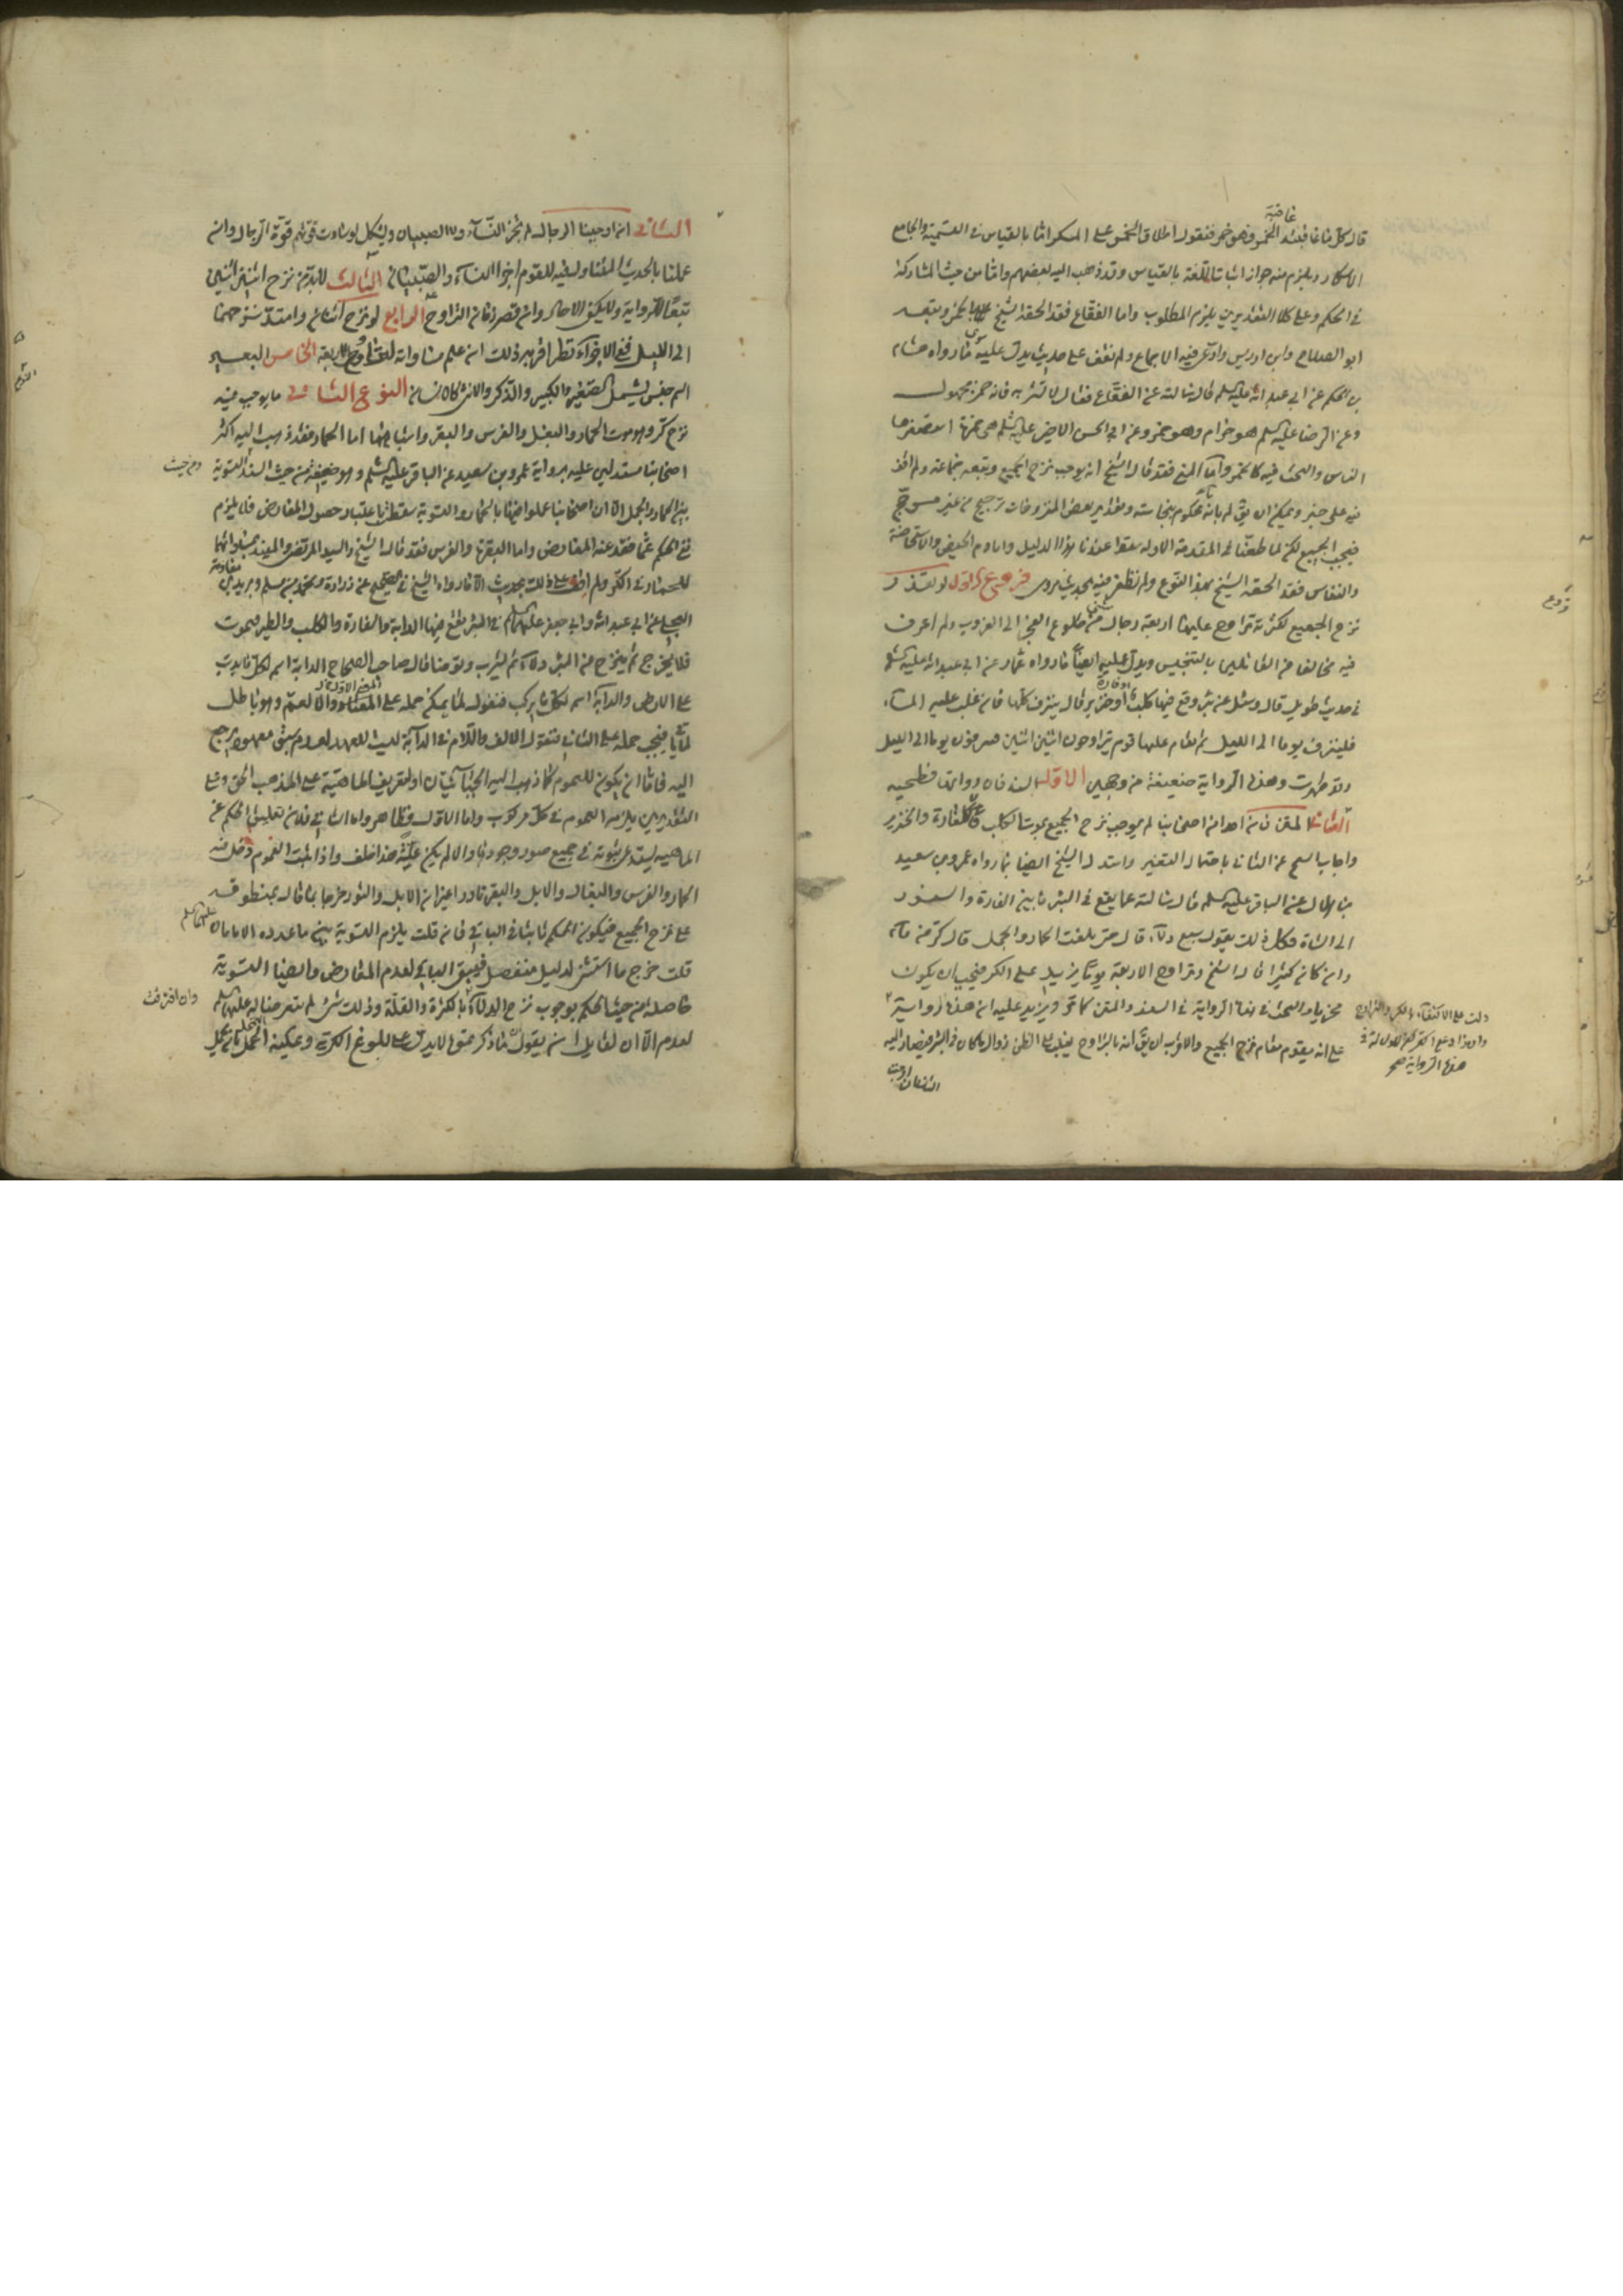 قال كل ما عاقبته عاقبة الخمر فهو خمر فنقول اطلاق الخمر على المسكر اما بالقياس في التسمية والجامع
الاسكار ويلزم منه جواز اثبات اللغة بالقياس وقد ذهب اليه بعضهم واما من حيث المشاركة
في الحكم وعلى كلا التقديرين يلزم المطلوب واما الفقاع فقد الحقه الشيخ بالخمر وتبعه
ابو الصلاح وابن ادريس وادعى فيه الاجماع ولم نقف على حديث يدل عليه سوى ما رواه هشام
بن الحكم عن ابي عبد الله عليه السلم قال سالته عن الفقاع فقال لا تشربه فانه خمر مجهول
وعن الرضا عليه السلم هو حرام وهو خمر وعن ابي الحسن الاخير عليه السلم هي خمرة استصغرها
الناس والبحث فيه كالخمر واما المني فقد قال الشيخ انه يوجب نزح الجميع وتبعه جماعة ولم اقف
فيه على خبر ويمكن ان يق لم بانه ماء محكوم بنجاسته وتقدير بعض المنزوحات ترجيح من غير مرجح
فيجب الجميع لكن لما طعنا في المقدمة الاولى سقط عندنا هذا الدليل واما دم الحيض والاستحاضة
والنفاس فقد الحقه الشيخ بهذا النوع ولم نظفر فيه بحديث مروي فروع الاول لو تعذر
نزح الجميع لكثرته تراوح عليها اربعة رجال مثنى من طلوع الفجر الى الغروب ولم اعرف
فيه مخالفا من القائلين بالتنجيس ويدل عليه ايضا ما رواه عمار عن ابي عبد الله عليه السلم
في حديث طويل قال وسئل عن بئر وقع فيها كلب او فارة او خنزير قال ينزف كلها فان غلب عليه الماء
فلينزف يوما الى الليل ثم يقام عليها قوم يتراوحون اثنين اثنين فينزفون يوما الى الليل
وقد طهرت وهذه الرواية ضعيفة من وجهين الاول السند فان رواتها فطحية
الثاني المتن فان احدا من اصحابنا لم يوجب نزح الجميع بموت الكلب والفارة والخنزير
واجاب الشيخ عن الثاني باحتمال التغير واستدل الشيخ ايضا بما رواه عمرو بن سعيد
بن هلال عن الباقر عليه السلم قال سالته عما يقع في البئر ما بين الفارة والسنور
الى الشاة فكل ذلك يقول سبع دلاء قال حتى بلغت الحمار والجمل قال كر من ماء
وان كان كثيرا قال الشيخ وتراوح الاربعة يوما يزيد على الكر فيجب ان يكون
مجزيا والبحث في هذه الرواية في السند والمتن كما مر ويزيد عليه ان هذه الرواية
دلت على الاكتفاء بالكر والتراوح
وان زاد على الكر لكن لا دلالة في
هذه الرواية صح
على انه يقوم مقام نزح الجميع والاقرب ان يق انه بالتراوح يغلب على الظن زوال ما كان في البئر فيصار اليه
الثاني اوجبنا
الثاني انما اوجبنا الرجال لم يجز النساء ولا الصبيان ويشكل لو ساوت قوتهم قوة الرجال وان
عملنا بالحديث المتناول بنفيه للقوم اجزا النساء والصبيان الثالث لابد من نزح اثنين اثنين
تبعا للرواية ولا يكفي الاحاد وان قصر زمان التراوح الرابع لو نزح اثنان وامتد نزحهما
الى الليل ففي الاجزاء نظر اقربه ذلك ان علم مساواته لتراوح الاربعة الخامس البعير
اسم جنس يشمل الصغير والكبير والذكر والانثى كالانسان النوع الثاني ما يوجب فيه
نزح كر وهو موت الحمار والبغل والفرس والبقر واشباهها اما الحمار فقد ذهب اليه اكثر
اصحابنا مستدلين عليه برواية عمرو بن سعيد عن الباقر عليه السلم وهو ضعيفة من حيث السند
ومن حيث
التسوية
بين الحمار والجمل الا ان اصحابنا عملوا فيها بالحمار والتسوية سقطت باعتبار حصول المعارض فلا يلزم
نفي الحكم عما فقد عنه المعارض واما البقرة والفرس فقد قال الشيخ والسيد المرتضى والمفيد بمساواتها
للحمار في الكر ولم اقف على ذلك بحديث الا ما رواه الشيخ في الصحيح عن زرارة ومحمد بن مسلم وبريد بن معاوية
العجلي عن ابي عبد الله وابي جعفر عليهما السلم في البئر يقع فيها الدابة والفارة والكلب والطير فيموت
قال يخرج ثم ينزح من البئر دلاء ثم اشرب وتوضا قال صاحب الصحاح الدابة اسم لكل ما يدب
على الارض والدابة اسم لكل ما يركب فنقول لا يمكن حمله على المعنى الاول والا لعم وهو باطل
لما ياتي فيجب حمله على الثاني فنقول الالف واللام في الدابة ليست للعهد لعدم سبق معهود يرجع
اليه فاما ان يكون للعموم كما ذهب اليه الجبائيان او لتعريف الماهية على المذهب الحق وعلى
التقديرين يلزم العموم في كل مركوب واما الاول فظاهر واما الثاني فلان تعليق الحكم على
الماهية يستدعي ثبوته في جميع صور وجودها والا لم يكن علة هذا خلف واذا ثبت العموم دخل فيه
الحمار والفرس والبغال والابل والبقر نادرا غير ان الابل والثور خرجا بما قال بمنطوقه
على نزح الجميع فيكون الحكم ثابتا في الباقي فان قلت يلزم التسوية بين ما عدده الامامان عليهما السلم
قلت خرج ما استثنى لدليل منفصل فيبقى الباقي لعدم المعارض وايضا التسوية
حاصلة من حيث الحكم بوجوب نزح الدلاء
وان افترقت
بالكثرة والقلة وذلك شيء لم يتعرضا له عليهما السلم
لعدم الا ان لقائل ان يقول ان ما ذكرتموه لا يدل على بلوغ الكرية ويمكن التمحل بان يحمل